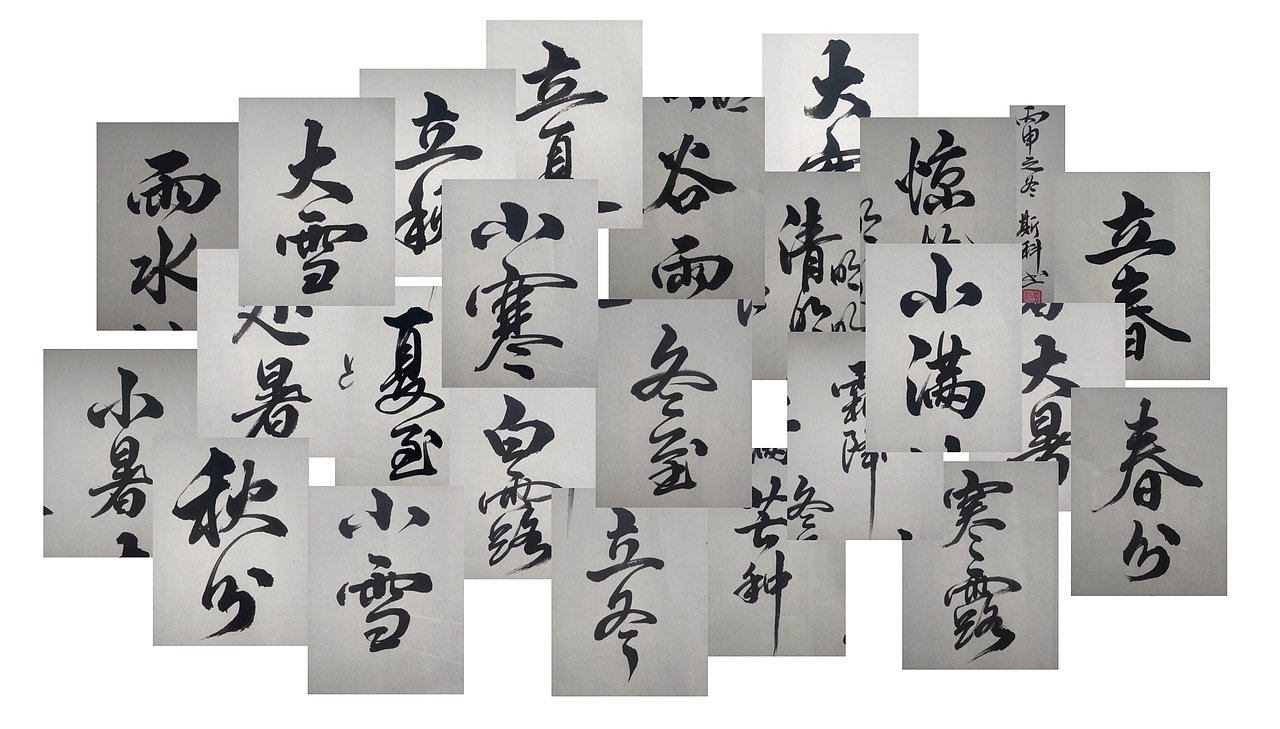 雨水
大雪
立秋
立夏
谷雨
大寒
清明
惊蛰
丙申之冬 斯科书
立春
小寒
小满
处暑
夏至
冬至
大暑
小暑
白露
霜降
春分
秋分
小雪
立冬
芒种
寒露